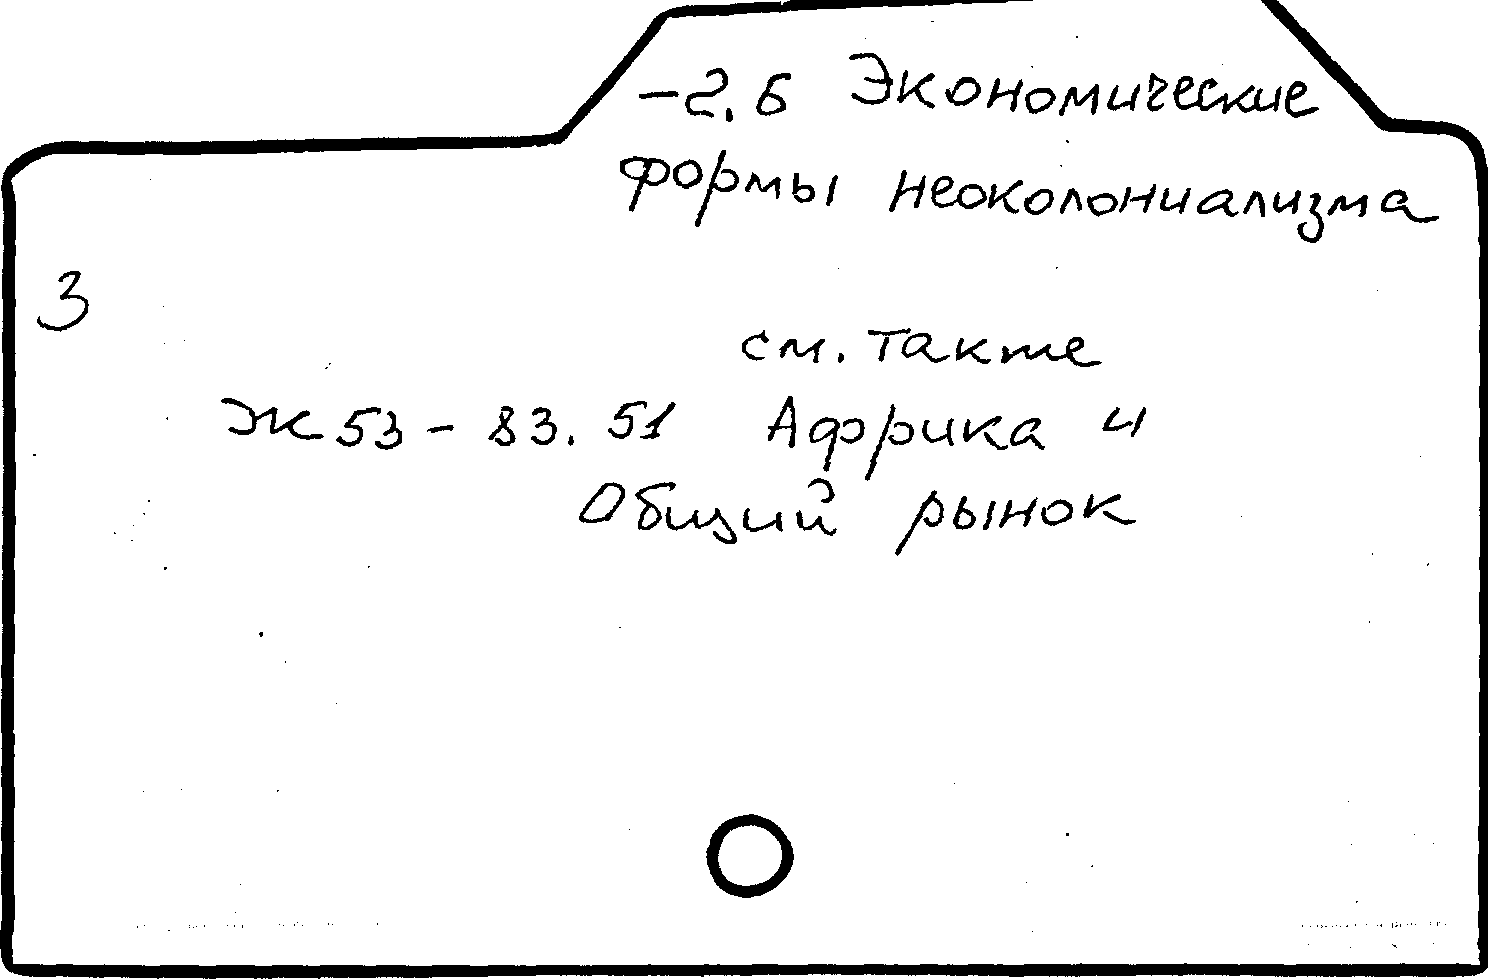 -2.6 Экономические
формы неоколониализма
3
см. также
Ж53-83.51 Африка и
Общий рынок